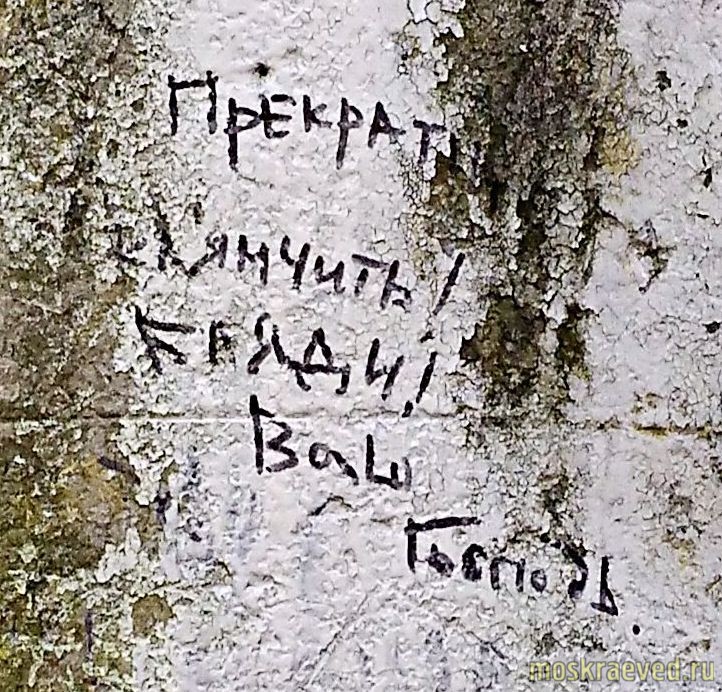 Прекрати
клянчить!
Бляди!
Ваш
Господь.
moskraeved.ru